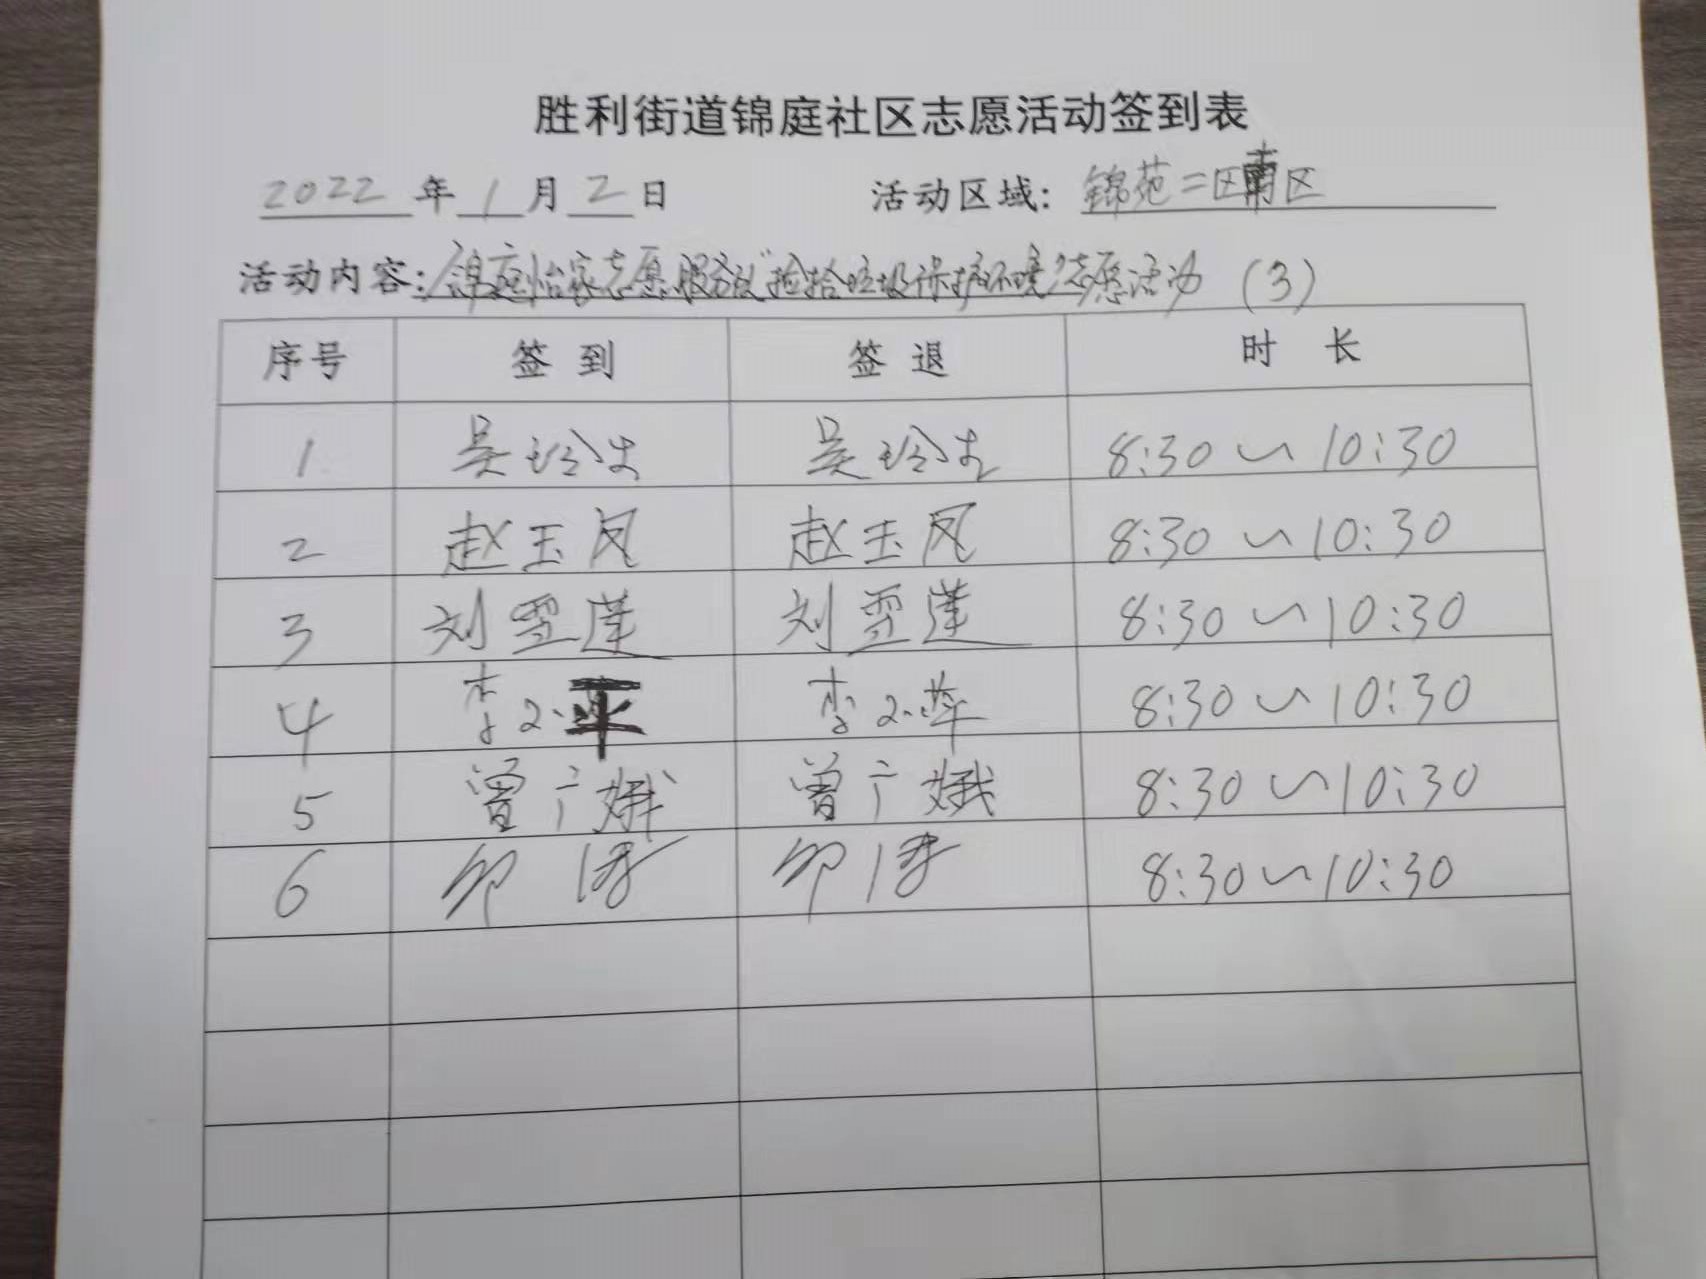 胜利街道锦庭社区志愿活动签到表
2022年1月2日 活动区域：锦苑二区南区
活动内容：锦庭怡家志愿服务队"捡拾垃圾保护环境"志愿活动（3）
序号 签到 签退 时长
1 吴玲 吴玲 8:30～10:30
2 赵玉凤 赵玉凤 8:30～10:30
3 刘雪莲 刘雪莲 8:30～10:30
4 李小平 李小萍 8:30～10:30
5 曾广娥 曾广娥 8:30～10:30
6 8:30～10:30